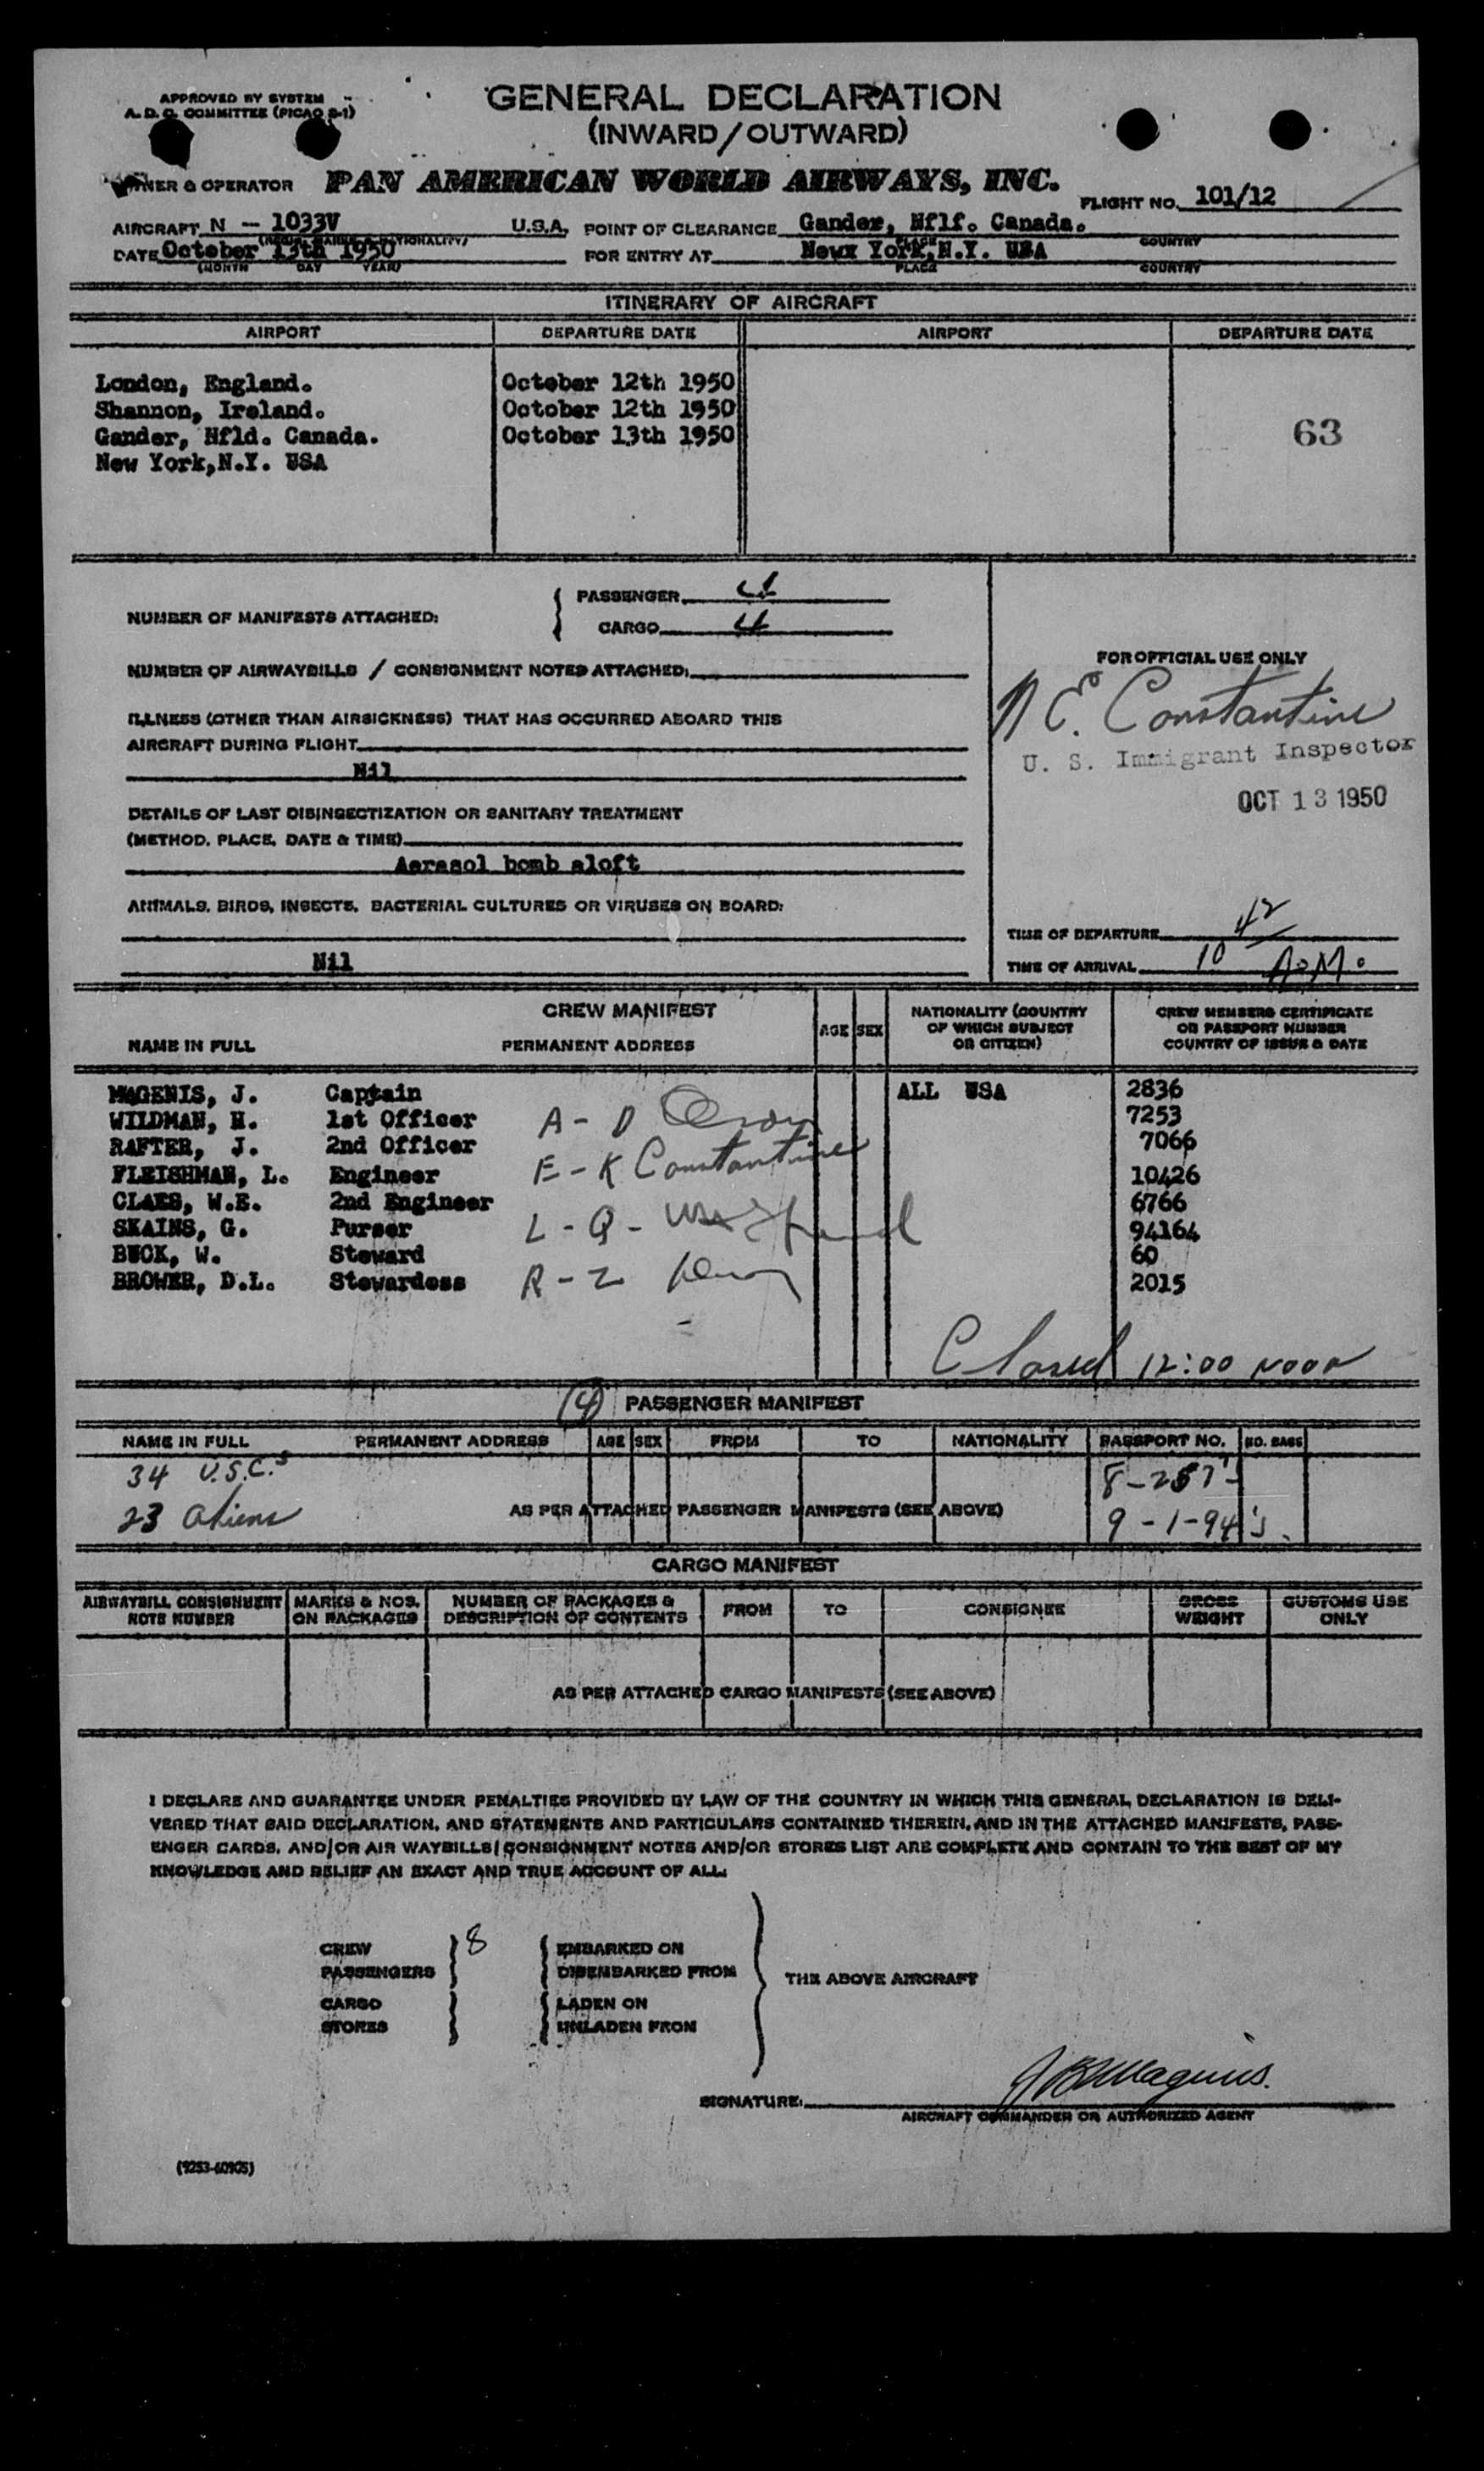 APPROVED BY SYSTEM
A. D. C. COMMITTEE (PICAO S-1)
GENERAL DECLARATION
(INWARD/OUTWARD)
OWNER & OPERATOR PAN AMERICAN WORLD AIRWAYS, INC.
FLIGHT NO. 101/12
AIRCRAFT N - 1033V U.S.A. POINT OF CLEARANCE Gander, Nflf. Canada.
DATE October 13th 1950 FOR ENTRY AT Newx York, N.Y. USA
(MONTH DAY YEAR) PLACE COUNTRY
ITINERARY OF AIRCRAFT
AIRPORT DEPARTURE DATE AIRPORT DEPARTURE DATE
London, England. October 12th 1950
Shannon, Ireland. October 12th 1950
Gander, Nfld. Canada. October 13th 1950 63
New York,N.Y. USA
NUMBER OF MANIFESTS ATTACHED: PASSENGER 4
CARGO 4
NUMBER OF AIRWAYBILLS / CONSIGNMENT NOTES ATTACHED:
FOR OFFICIAL USE ONLY
N E. Constantine
U. S. Immigrant Inspector
OCT 13 1950
ILLNESS (OTHER THAN AIRSICKNESS) THAT HAS OCCURRED ABOARD THIS
AIRCRAFT DURING FLIGHT
Nil
DETAILS OF LAST DISINSECTIZATION OR SANITARY TREATMENT
(METHOD, PLACE, DATE & TIME)
Aerasol bomb aloft
ANIMALS, BIRDS, INSECTS, BACTERIAL CULTURES OR VIRUSES ON BOARD:
Nil
TIME OF DEPARTURE
TIME OF ARRIVAL 10 42 A.M.
CREW MANIFEST
NAME IN FULL PERMANENT ADDRESS AGE SEX NATIONALITY (COUNTRY OF WHICH SUBJECT OR CITIZEN) CREW MEMBERS CERTIFICATE OR PASSPORT NUMBER COUNTRY OF ISSUE & DATE
MAGENIS, J. Captain ALL USA 2836
WILDMAN, H. 1st Officer A - D 7253
RAFTER, J. 2nd Officer 7066
FLEISHMAN, L. Engineer E - K Constantine 10426
CLAES, W.E. 2nd Engineer 6766
SKAINS, G. Purser L - Q - 94164
BUCK, W. Steward 60
BROWER, D.L. Stewardess R - Z 2015
Closed 12:00 noon
(4) PASSENGER MANIFEST
NAME IN FULL PERMANENT ADDRESS AGE SEX FROM TO NATIONALITY PASSPORT NO. NO. BAGS
34 U.S.C.s 8-257's
23 Aliens AS PER ATTACHED PASSENGER MANIFESTS (SEE ABOVE) 9-1-94's.
CARGO MANIFEST
AIRWAYBILL CONSIGNMENT NOTE NUMBER MARKS & NOS. ON PACKAGES NUMBER OF PACKAGES & DESCRIPTION OF CONTENTS FROM TO CONSIGNEE GROSS WEIGHT CUSTOMS USE ONLY
AS PER ATTACHED CARGO MANIFESTS (SEE ABOVE)
I DECLARE AND GUARANTEE UNDER PENALTIES PROVIDED BY LAW OF THE COUNTRY IN WHICH THIS GENERAL DECLARATION IS DELI-
VERED THAT SAID DECLARATION, AND STATEMENTS AND PARTICULARS CONTAINED THEREIN, AND IN THE ATTACHED MANIFESTS, PASS-
ENGER CARDS, AND/OR AIR WAYBILLS/CONSIGNMENT NOTES AND/OR STORES LIST ARE COMPLETE AND CONTAIN TO THE BEST OF MY
KNOWLEDGE AND BELIEF AN EXACT AND TRUE ACCOUNT OF ALL:
CREW 8 EMBARKED ON
PASSENGERS DISEMBARKED FROM THE ABOVE AIRCRAFT
CARGO LADEN ON
STORES UNLADEN FROM
SIGNATURE: J B Magenis.
AIRCRAFT COMMANDER OR AUTHORIZED AGENT
(9253-60905)